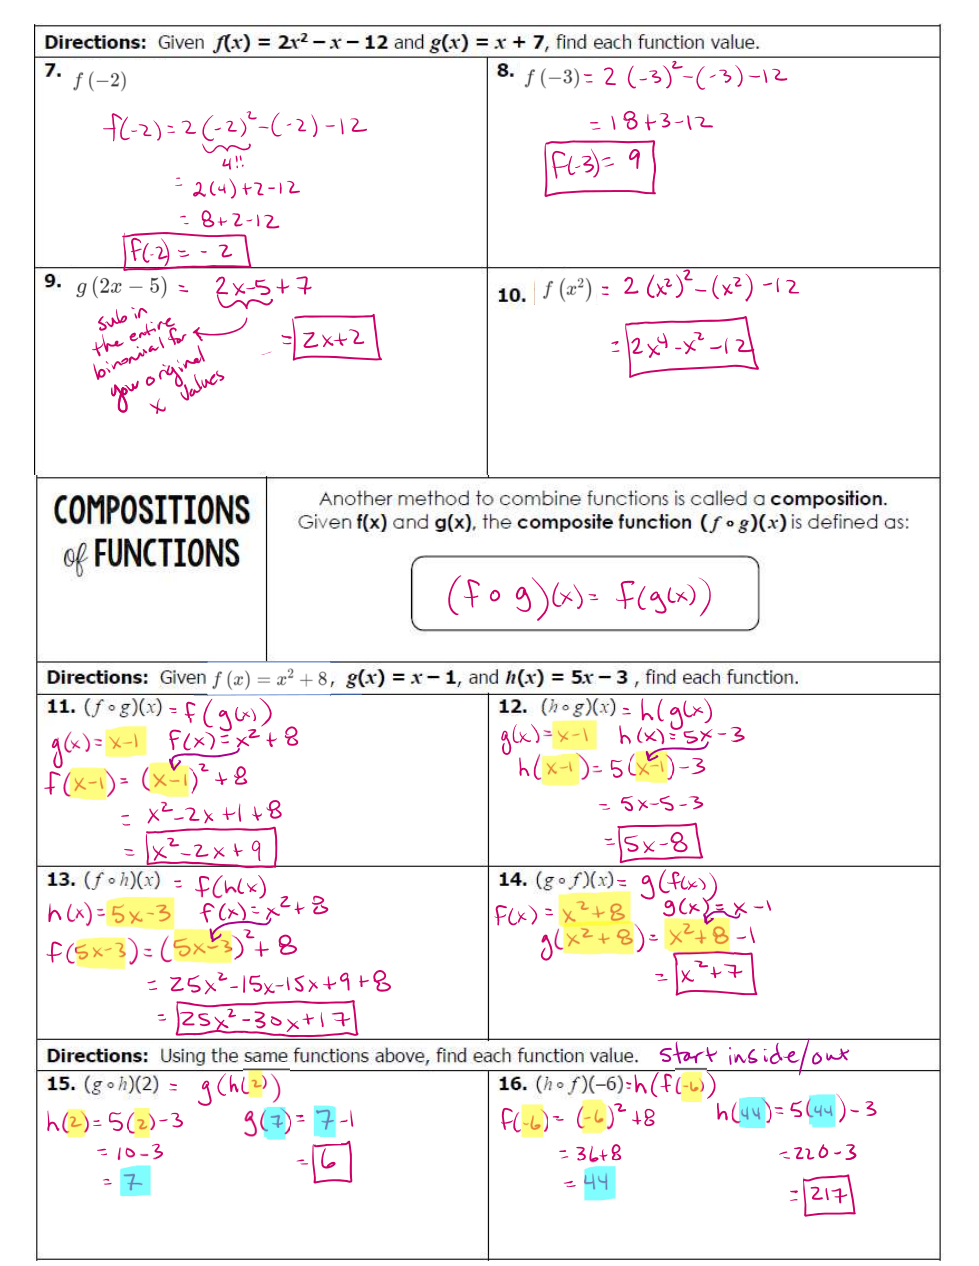 Directions: Given f(x) = 2x² – x – 12 and g(x) = x + 7, find each function value.
7. f(−2)
f(-2) = 2(-2)² - (-2) - 12
4!!
= 2(4) + 2 - 12
= 8 + 2 - 12
f(-2) = - 2
8. f(−3) = 2(-3)² - (-3) - 12
= 18 + 3 - 12
f(-3) = 9
9. g(2x − 5) = 2x - 5 + 7
sub in
the entire
binomial for
your original
x values
= 2x + 2
10. f(x²) = 2(x²)² - (x²) - 12
= 2x⁴ - x² - 12
COMPOSITIONS
of FUNCTIONS
Another method to combine functions is called a composition.
Given f(x) and g(x), the composite function (f ∘ g)(x) is defined as:
(f ∘ g)(x) = f(g(x))
Directions: Given f(x) = x² + 8, g(x) = x – 1, and h(x) = 5x – 3 , find each function.
11. (f ∘ g)(x) = f(g(x))
g(x) = x-1 f(x) = x² + 8
f(x-1) = (x-1)² + 8
= x² - 2x + 1 + 8
= x² - 2x + 9
12. (h ∘ g)(x) = h(g(x)
g(x) = x-1 h(x) = 5x - 3
h(x-1) = 5(x-1) - 3
= 5x - 5 - 3
= 5x - 8
13. (f ∘ h)(x) = f(h(x)
h(x) = 5x-3 f(x) = x² + 8
f(5x-3) = (5x-3)² + 8
= 25x² - 15x - 15x + 9 + 8
= 25x² - 30x + 17
14. (g ∘ f)(x) = g(f(x))
f(x) = x² + 8 g(x) = x - 1
g(x² + 8) = x² + 8 - 1
= x² + 7
Directions: Using the same functions above, find each function value. start inside/out
15. (g ∘ h)(2) = g(h(2))
h(2) = 5(2) - 3 g(7) = 7 - 1
= 10 - 3 = 6
= 7
16. (h ∘ f)(−6) = h(f(-6))
f(-6) = (-6)² + 8 h(44) = 5(44) - 3
= 36 + 8 = 220 - 3
= 44 = 217